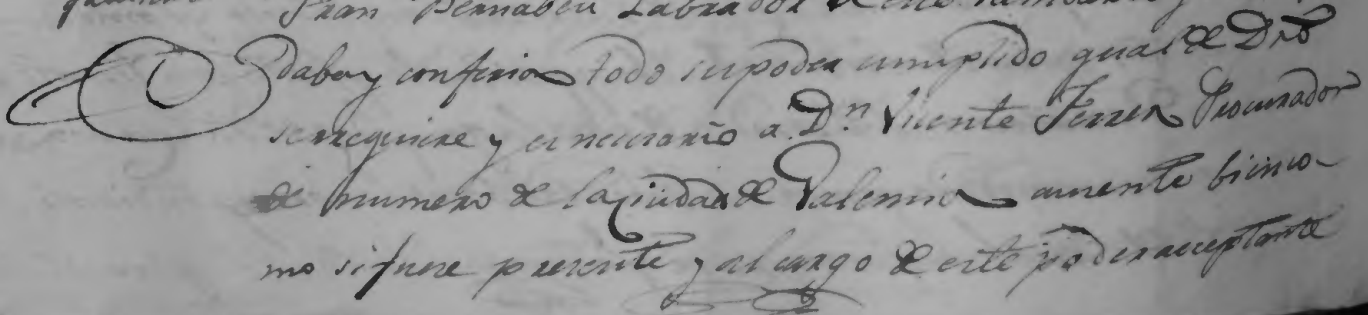 Fran Bernabeu Labrador de este
daba y conferia todo su poder cumplido qual de Dro
se rrequiere y es necesario a Dn Vicente Ferrer Procurador
de numero de la ciudad de Valencia ausente bien co
mo si fuere presente y al cargo de este poder acceptante